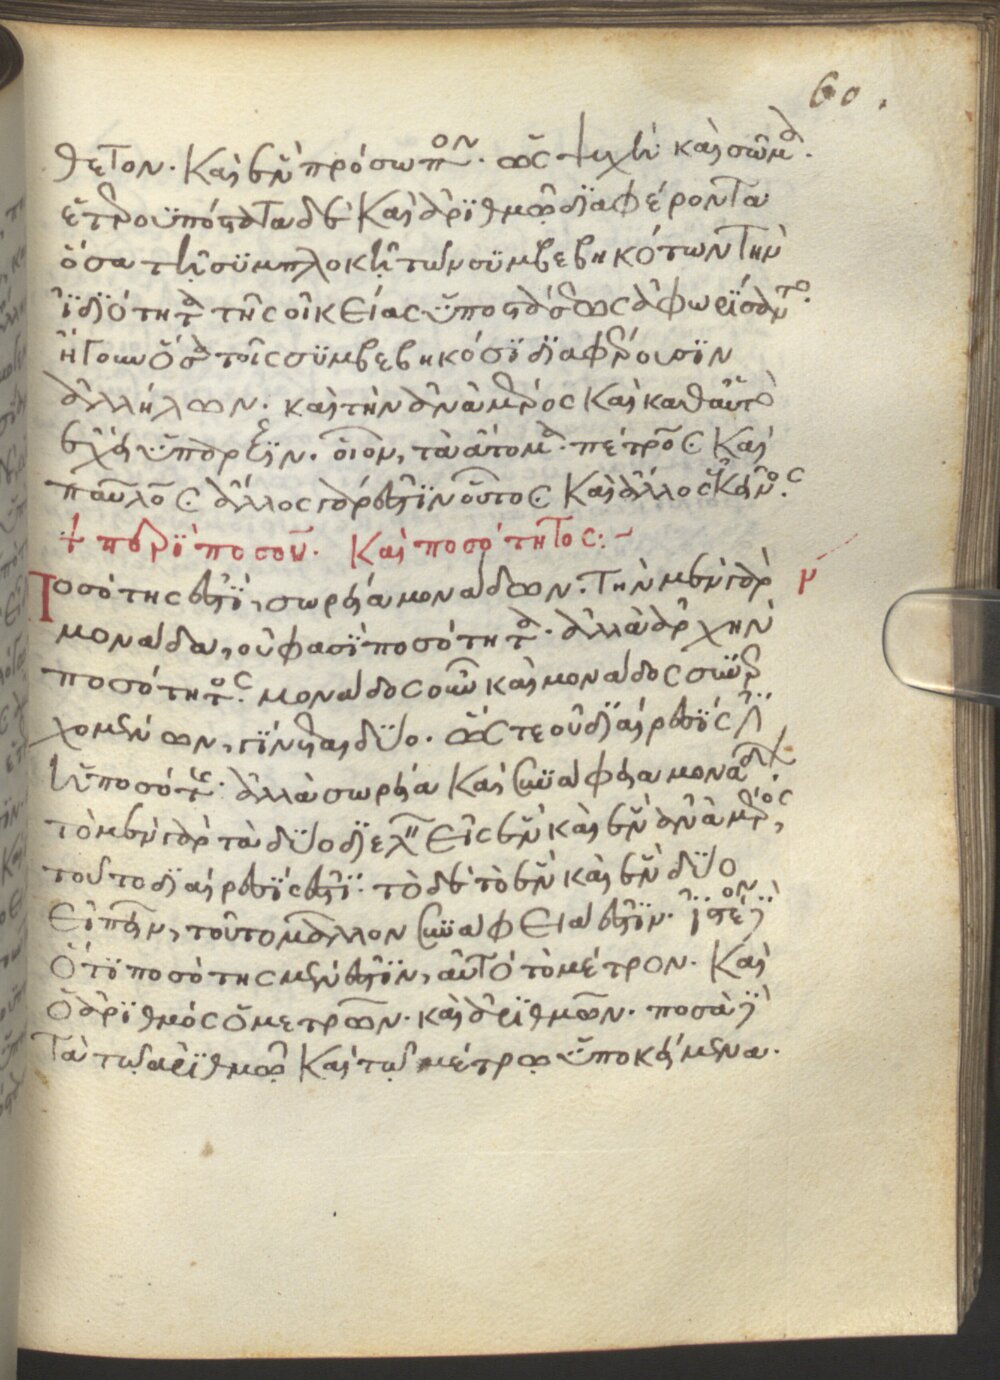 60.
θετον. καὶ ἓν πρόσωπον. ὡς ψυχὴ καὶ σῶμα.
ἕτερουπόστατα δὲ καὶ ἀριθμῷ διαφέροντα
ὅσα τῇ συμπλοκῇ τῶν συμβεβηκότων τὴν
ἰδιότητα τῆς οἰκείας ὑποστάσεως ἀφωρίσαντο.
ἤγουν ὅσα τοῖς συμβεβηκόσι διαφέρουσιν
ἀλλήλων. καὶ τὴν ἀνὰ μέρος καὶ καθ' αὑτὸ
ἔχει ὕπαρξιν. οἷον, τὰ ἄτομα. πέτρος καὶ
παῦλος ἄλλος γάρ ἐστιν οὗτος καὶ ἄλλος κἀκεῖνος.
περὶ ποσοῦ. καὶ ποσότητος:~
Ποσότης ἐστὶ, σωρεία μονάδων. τὴν μὲν γὰρ
μονάδα, οὔ φασι ποσότητα. ἀλλὰ ἀρχὴν
ποσότητος. μονάδος οὖν καὶ μονάδος συνερ
χομένων, γίνεται δύο. ὥστε οὐ διαίρεσίς ἐστιν
ἡ ποσότης. ἀλλὰ σωρεία καὶ συνάφεια μονάδων.
τὸ μὲν γὰρ τὰ δύο διελεῖν εἰς ἓν καὶ ἓν ἀνὰ μέρος,
τοῦτο διαίρεσίς ἐστι. τὸ δὲ τὸ ἓν καὶ ἓν δύο
εἰπεῖν, τοῦτο μᾶλλον συνάφεια ἐστιν. ἰστέον δὲ
ὅτι ποσότης μέν ἐστιν, αὐτὸ τὸ μέτρον. καὶ
ὁ ἀριθμὸς ὁ μετρῶν. καὶ ἀριθμῶν. ποσὰ δὲ
τὰ τῷ ἀριθμῷ καὶ τῷ μέτρῳ ὑποκείμενα.